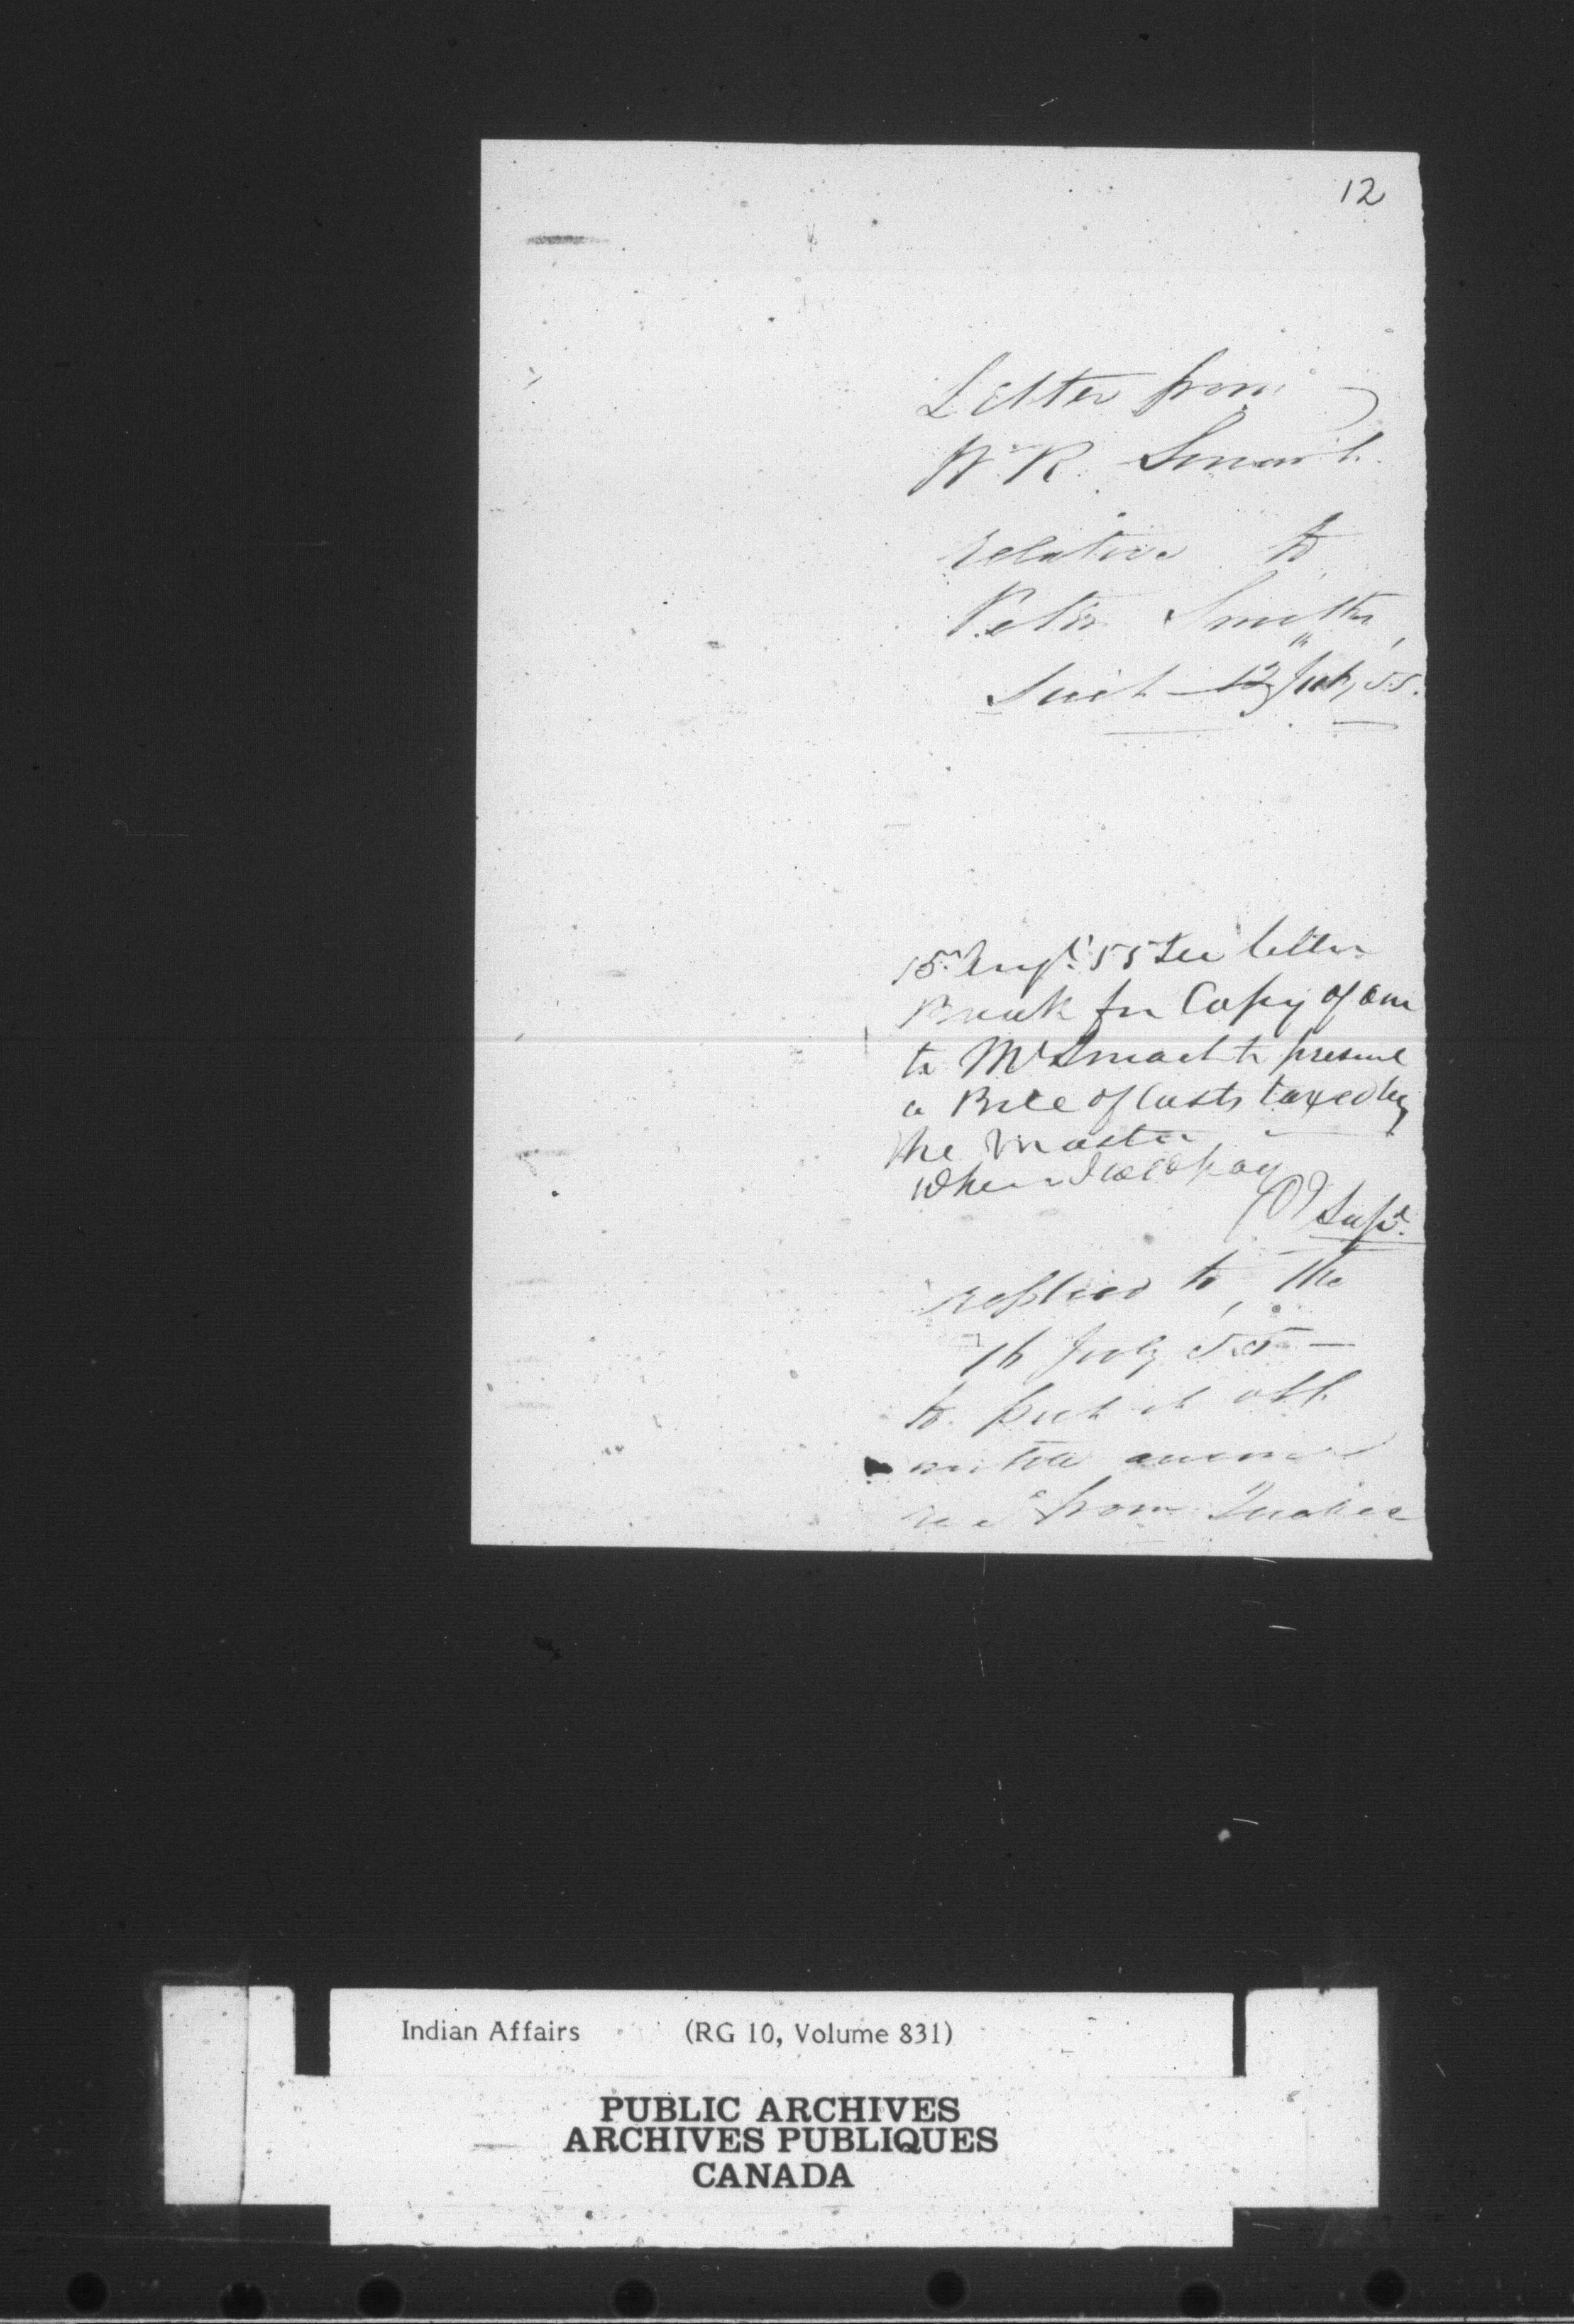 12
Letter from
W. R. Smart
relative to
Peter Smith
Suit 12 July 55.
15 Augt '55 See letter
Book for Copy of one
to Mr Smart to present
a Bill of Costs taxed by
the Master,
when I will pay
Supt.
replied to the
16 July 55 —
to put it off
until answer
from Quebec
Indian Affairs (RG 10, Volume 831)
PUBLIC ARCHIVES
ARCHIVES PUBLIQUES
CANADA